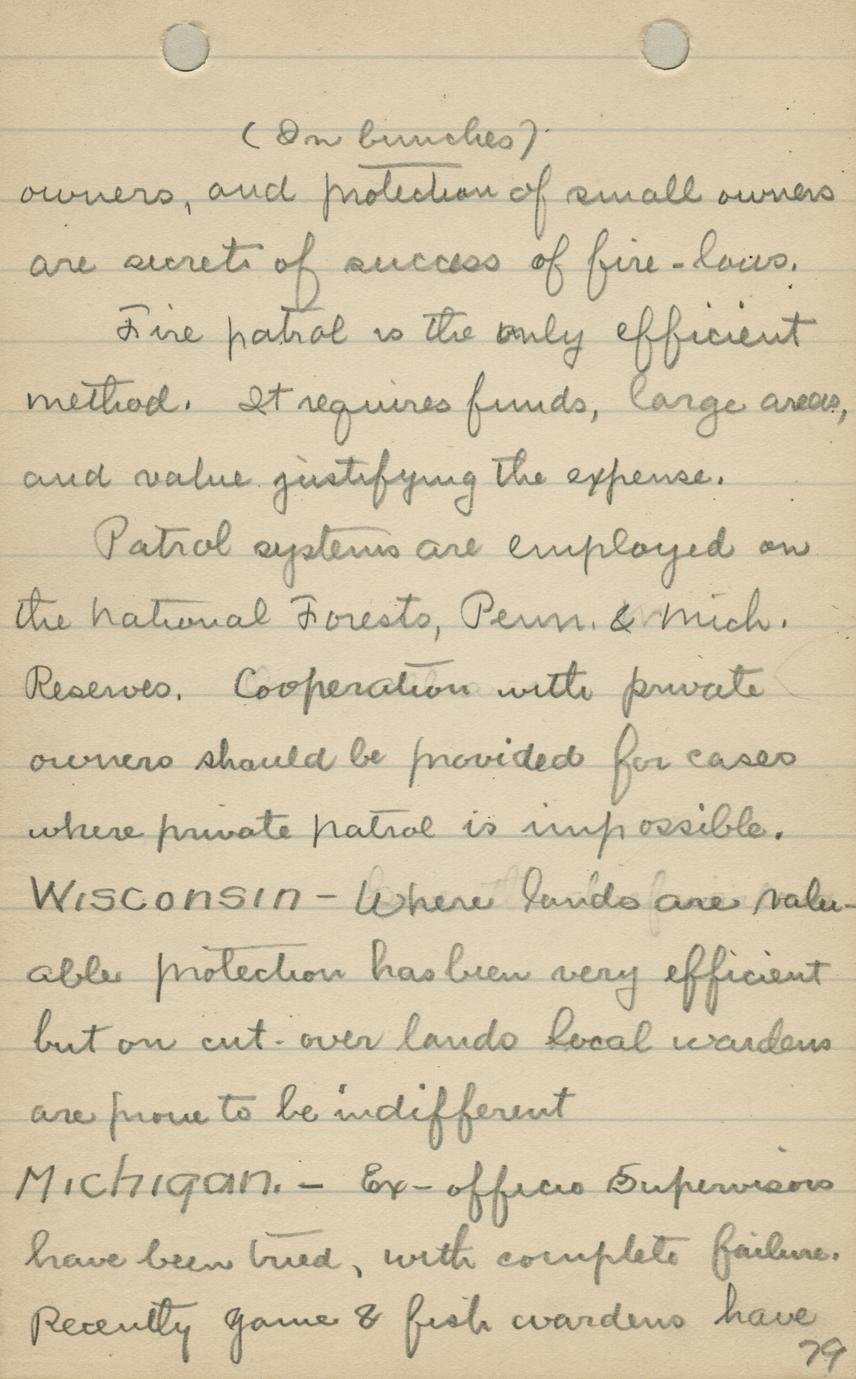 (On bunches)
owners, and protection of small owners
are secrets of success of fire-laws.
Fire patrol is the only efficient
method. It requires funds, large areas,
and value justifying the expense.
Patrol systems are employed on
the National Forests, Penn. & Mich.
Reserves. Cooperation with private
owners should be provided for cases
where private patrol is impossible.
Wisconsin - Where lands are valu-
able protection has been very efficient
but on cut-over lands local wardens
are prone to be indifferent
Michigan. - Ex-officio Supervisors
have been tried, with complete failure.
Recently game & fish wardens have
79